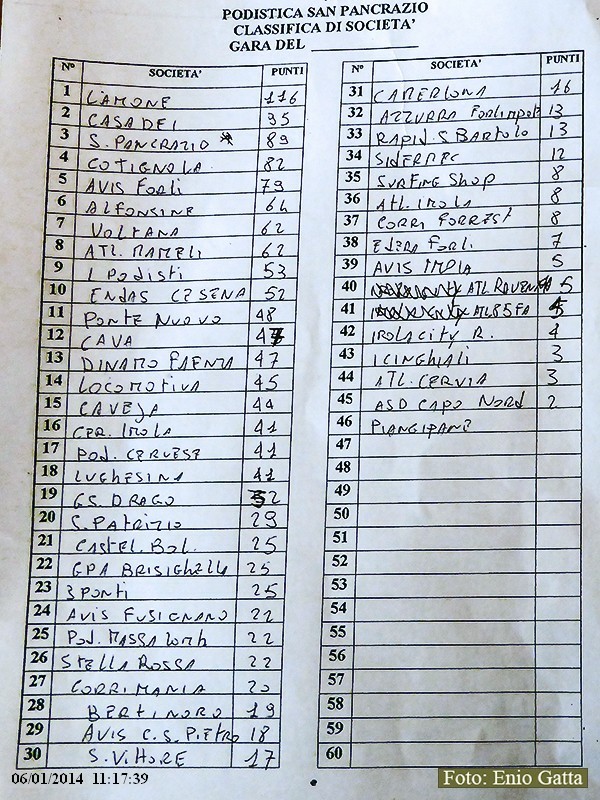 PODISTICA SAN PANCRAZIO
CLASSIFICA DI SOCIETA'
GARA DEL
N° SOCIETA' PUNTI
1 LAMONE 116
2 CASADEI 95
3 S. PANCRAZIO 89
4 COTIGNOLA 82
5 AVIS FORLI 79
6 ALFONSINE 64
7 VOLTANA 62
8 ATL. MAMELI 62
9 I PODISTI 53
10 ENDAS CESENA 52
11 PONTE NUOVO 48
12 CAVA 47
13 DINAMO FAENZA 47
14 LOCOMOTIVA 45
15 CAVEJA 44
16 CER. IMOLA 41
17 POD. CERVESE 41
18 LUGHESINA 41
19 GS. DRAGO 32
20 S. PATRIZIO 29
21 CASTEL. BOL. 25
22 GPA BRISIGHELLA 25
23 3 PONTI 25
24 AVIS FUSIGNANO 22
25 POD. MASSA LOMB 22
26 STELLA ROSSA 22
27 CORRIMANIA 20
28 BERTINORO 19
29 AVIS C.S. PIETRO 18
30 S. VITTORE 17
N° SOCIETA' PUNTI
31 CAMERLONA 16
32 AZZURRA FORLIMPOP 13
33 RAPID. S BARTOLO 13
34 SIDERMEC 12
35 SURFING SHOP 8
36 ATL. IMOLA 8
37 CORRI FORREST 8
38 EDERA FORLI 7
39 AVIS IMOLA 5
40 ATL RAVENNA 5
41 5
42 IMOLA CITY R. 4
43 I CINGHIALI 3
44 ATL. CERVIA 3
45 ASD CAPO NORD 2
46 PIANGIPANE
47
48
49
50
51
52
53
54
55
56
57
58
59
60
06/01/2014 11:17:39
Foto: Enio Gatta